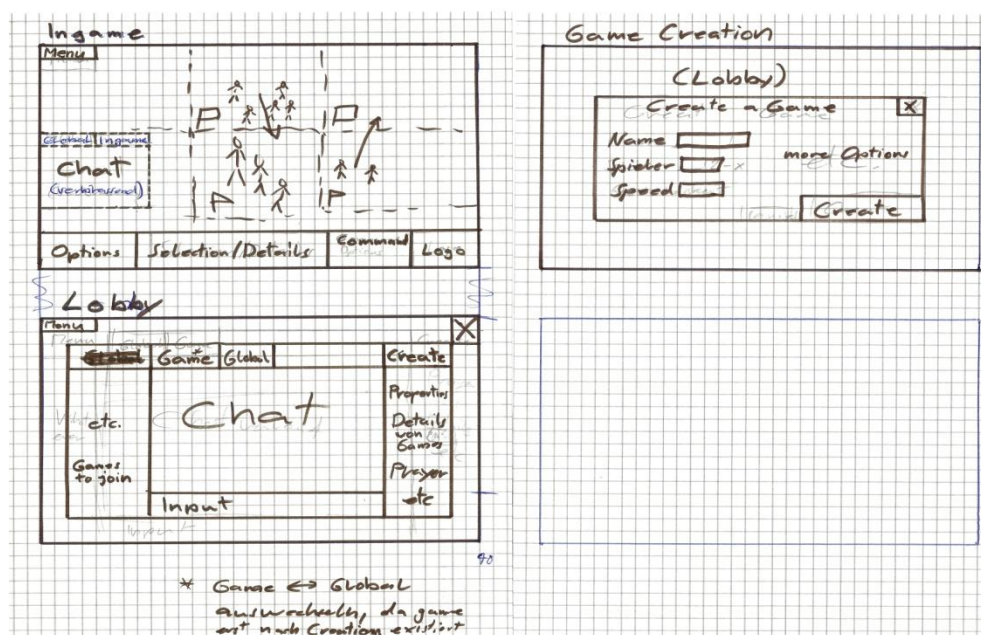 Ingame
Menu
Global Ingame
Chat
Options Selection/Details Command Logo
Lobby
Menu X
Game* Global Create
Chat
etc.
Games
to join
Properties
Details
von
Games
Player
etc
Input
* Game ↔ Global
auswechseln, da game
erst nach Creation existiert
40
Game Creation
(Lobby)
Create a Game X
Name
Spieler
Speed
more Options
Create